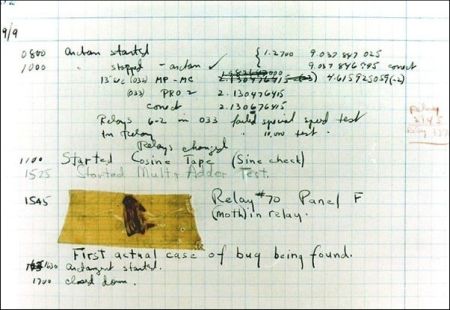 9/9
0800 antan started { 1.2700 9.037 847 025
1000 " stopped - antan ✓ 9.037 846 995 conect
13"uc (032) MP - MC 4.615925059(-2)
(033) PRO 2 2.130476415
conect 2.130676415
Relays 6-2 in 033 failed special speed test
in relay " 10.000 test.
Relay
2145
Relays changed
1100 Started Cosine Tape (Sine check)
1525 Started Mult+Adder Test.
1545 Relay #70 Panel F
(moth) in relay.
First actual case of bug being found.
1630 antangent started.
1700 closed down.